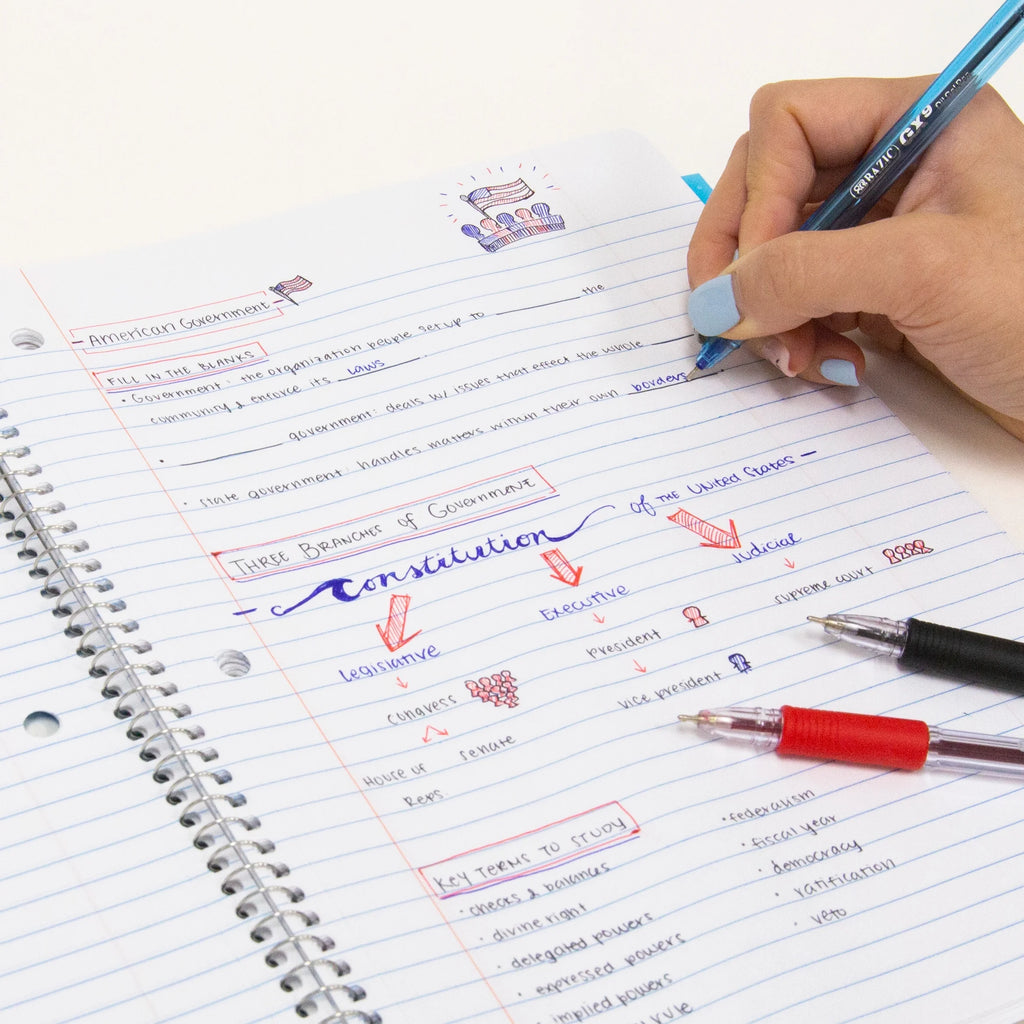 BAZIC GX9
American Government
FILL IN THE BLANKS
• Government: the organization people set up to ______ the
community & enforce its laws.
• ______ government: deals w/ issues that effect the whole ______
• State government: handles matters within their own borders
THREE BRANCHES of GOVERNMENT
Constitution of THE UNITED STATES
Legislative
Executive
Judicial
congress
president
supreme court
House of Reps
senate
vice president
KEY TERMS TO STUDY
• checks & balances
• divine right
• delegated powers
• expressed powers
• implied powers
rule
• federalism
• fiscal year
• democracy
• ratification
• veto